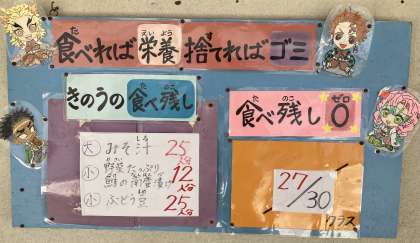 食べれば栄養捨てればゴミ
きのうの食べ残し
食べ残し0
大 みそ汁 25人分
小 野菜たっぷり 鮭の南蛮漬け 12人分
小 ぶどう豆 25人分
27/30
クラス